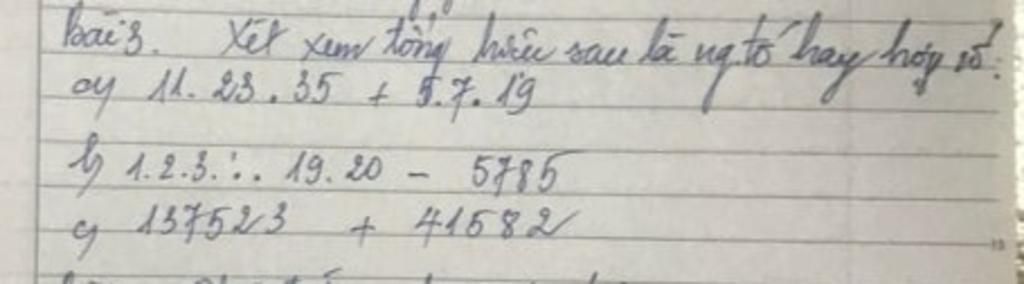 Bài 3. Xét xem tổng hiệu sau là ng.tố hay hợp số:
a) 11.23.35 + 5.7.19
b) 1.2.3... 19.20 - 5785
c) 137523 + 41582